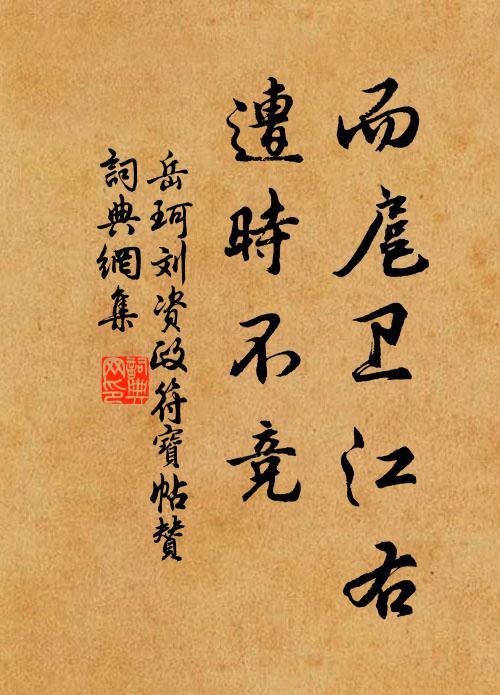 而扈卫江右
遭時不竞
岳珂刘资政符寶帖赞
詞典網集
詞典网印